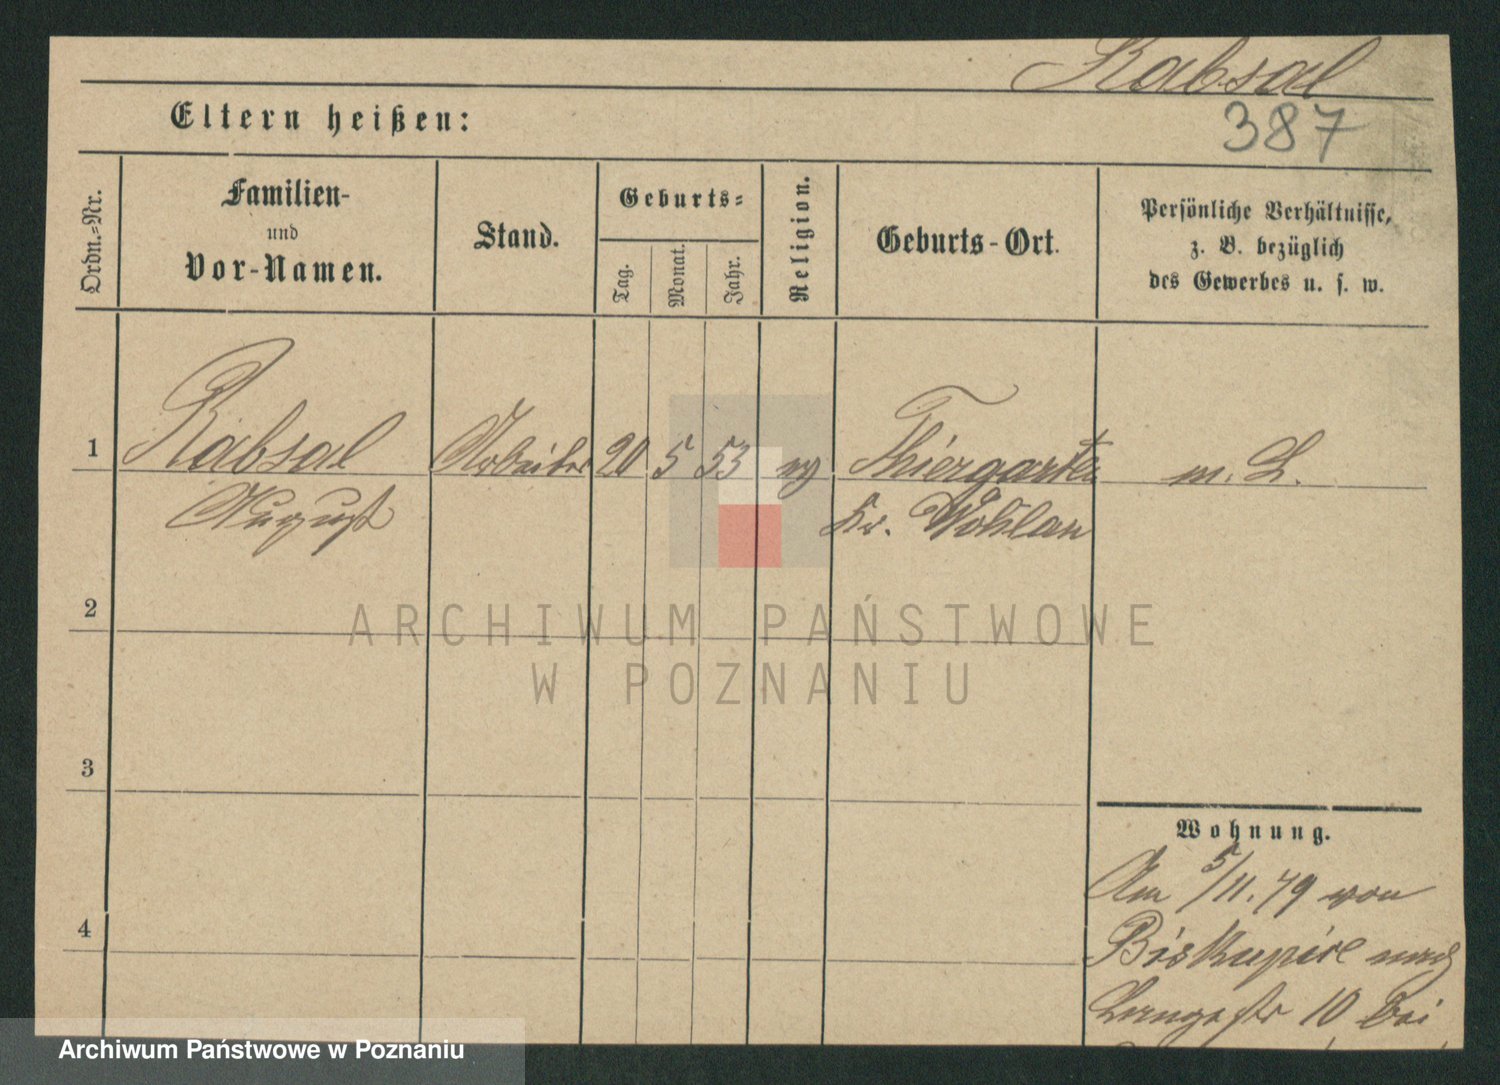 Rabsal
387
Eltern heißen:
Ordn.-Nr.
Familien-
und
Vor-Namen.
Stand.
Geburts-
Tag.
Monat.
Jahr.
Religion.
Geburts-Ort.
Persönliche Verhältnisse,
z. B. bezüglich
des Gewerbes u. s. w.
1 Rabsal Arbeiter 20 5 53 Thiergarten m. L.
August Kr. Wohlau
2
ARCHIWUM PAŃSTWOWE
W POZNANIU
3
Wohnung.
Am 5/11.79 von
4
Biskupice nach
Langestr 10 bei
Archiwum Państwowe w Poznaniu